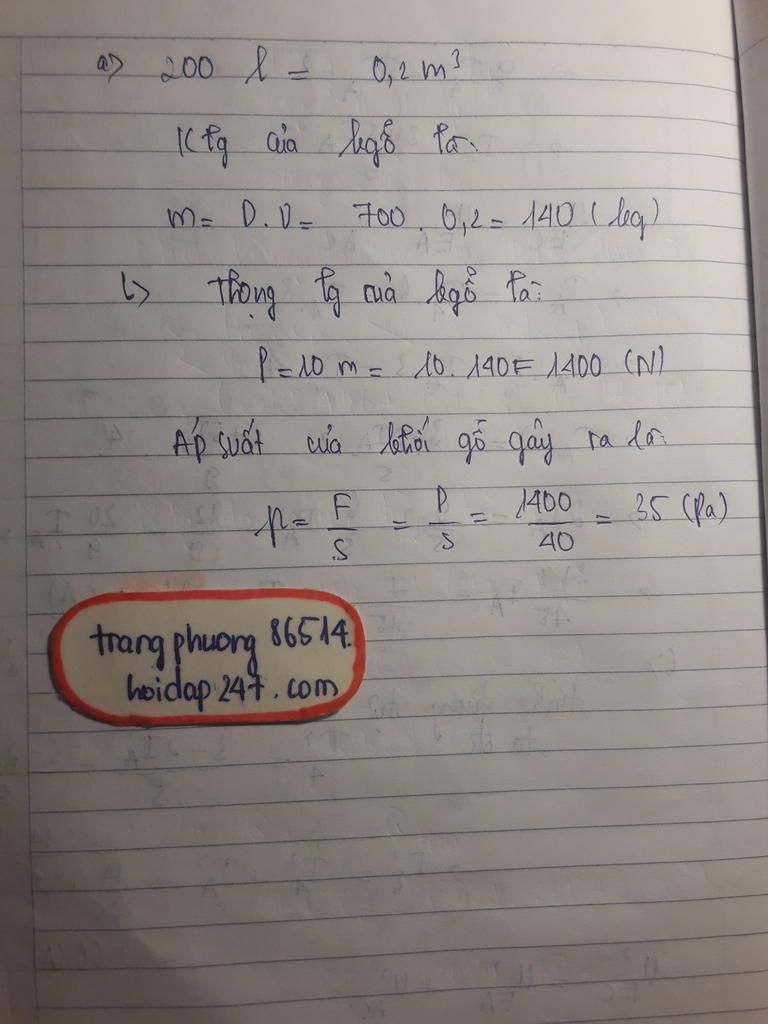 a> 200 l = 0,2 m³
Klg của kgỗ là:
m = D.V = 700 . 0,2 = 140 (kg)
b> Trọng lg của kgỗ là:
P = 10 m = 10. 140 = 1400 (N)
Áp suất của khối gỗ gây ra là:
p = F/S = P/S = 1400/40 = 35 (Pa)
trangphuong 86514.
hoidap247.com